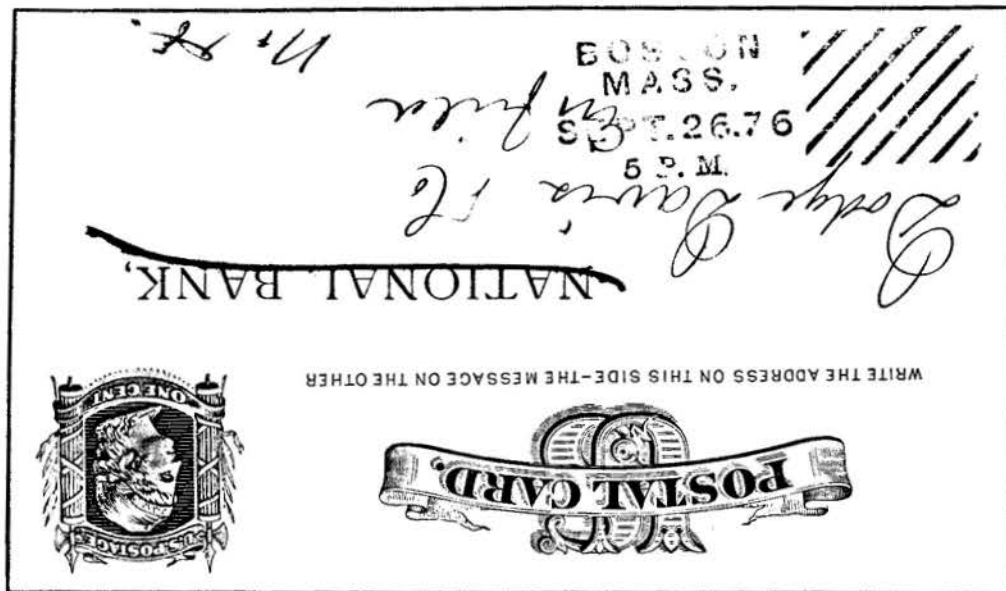 POSTAL CARD.
U.S. POSTAGE
ONE CENT
WRITE THE ADDRESS ON THIS SIDE-THE MESSAGE ON THE OTHER
NATIONAL BANK,
Dodge Davis
BOSTON
MASS.
SEPT.26.76
5 P.M.